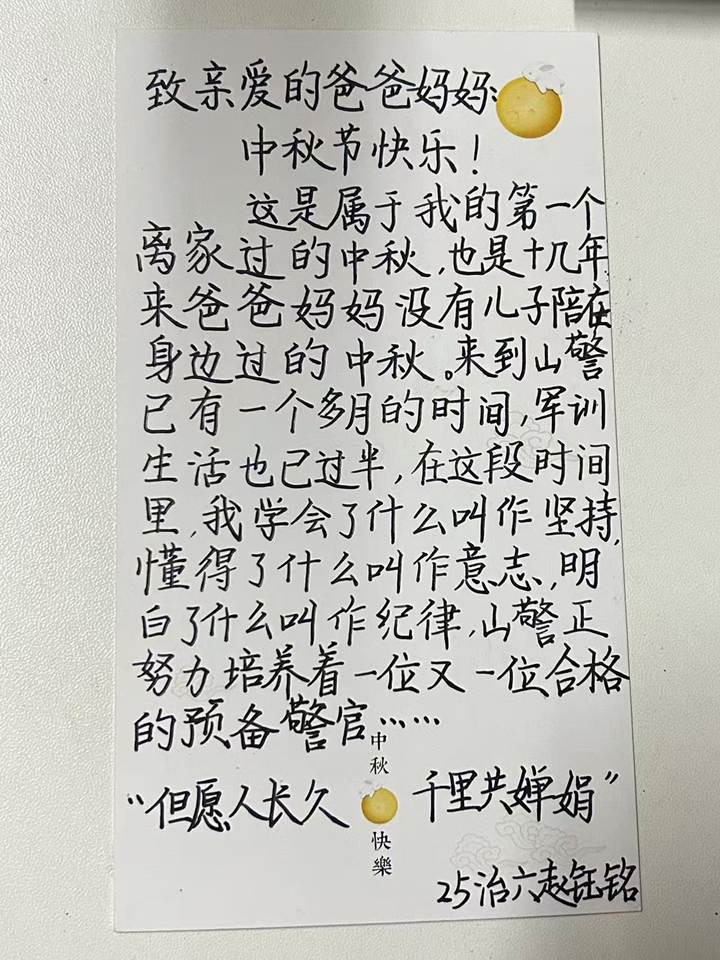 致亲爱的爸爸妈妈:
中秋节快乐!
这是属于我的第一个
离家过的中秋,也是十几年
来爸爸妈妈没有儿子陪在
身边过的中秋。来到山警
已有一个多月的时间,军训
生活也已过半,在这段时间
里,我学会了什么叫作坚持,
懂得了什么叫作意志,明
白了什么叫作纪律,山警正
努力培养着一位又一位合格
的预备警官……
“但愿人长久 千里共婵娟”
中秋快樂
25治六赵钰铭